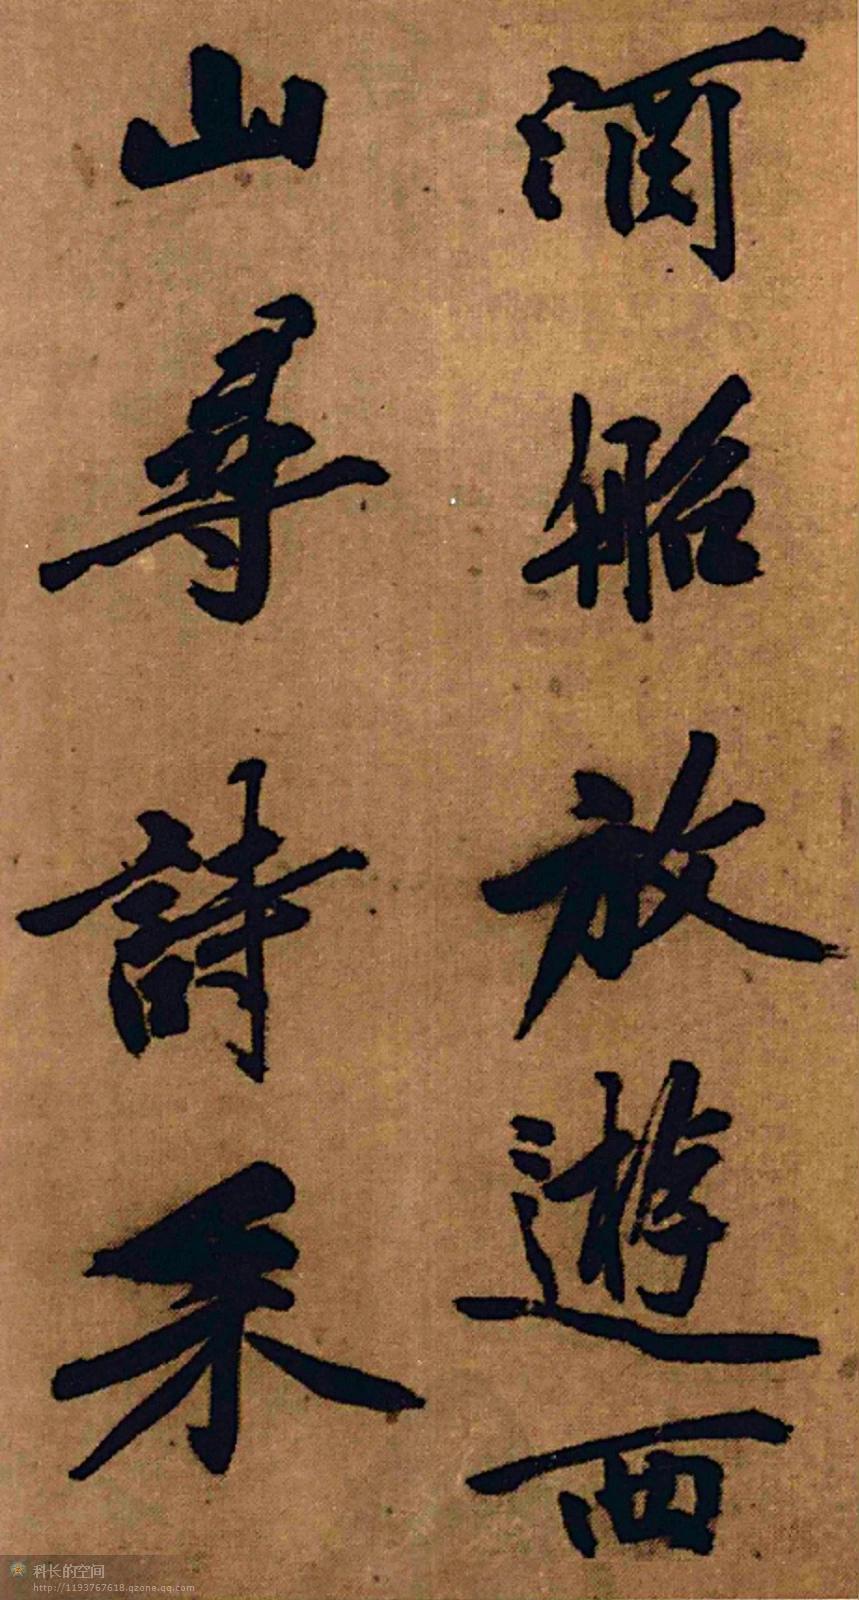 酒船放遊西
山尋詩采
科长的空间
http://1193767618.qzone.qq.com